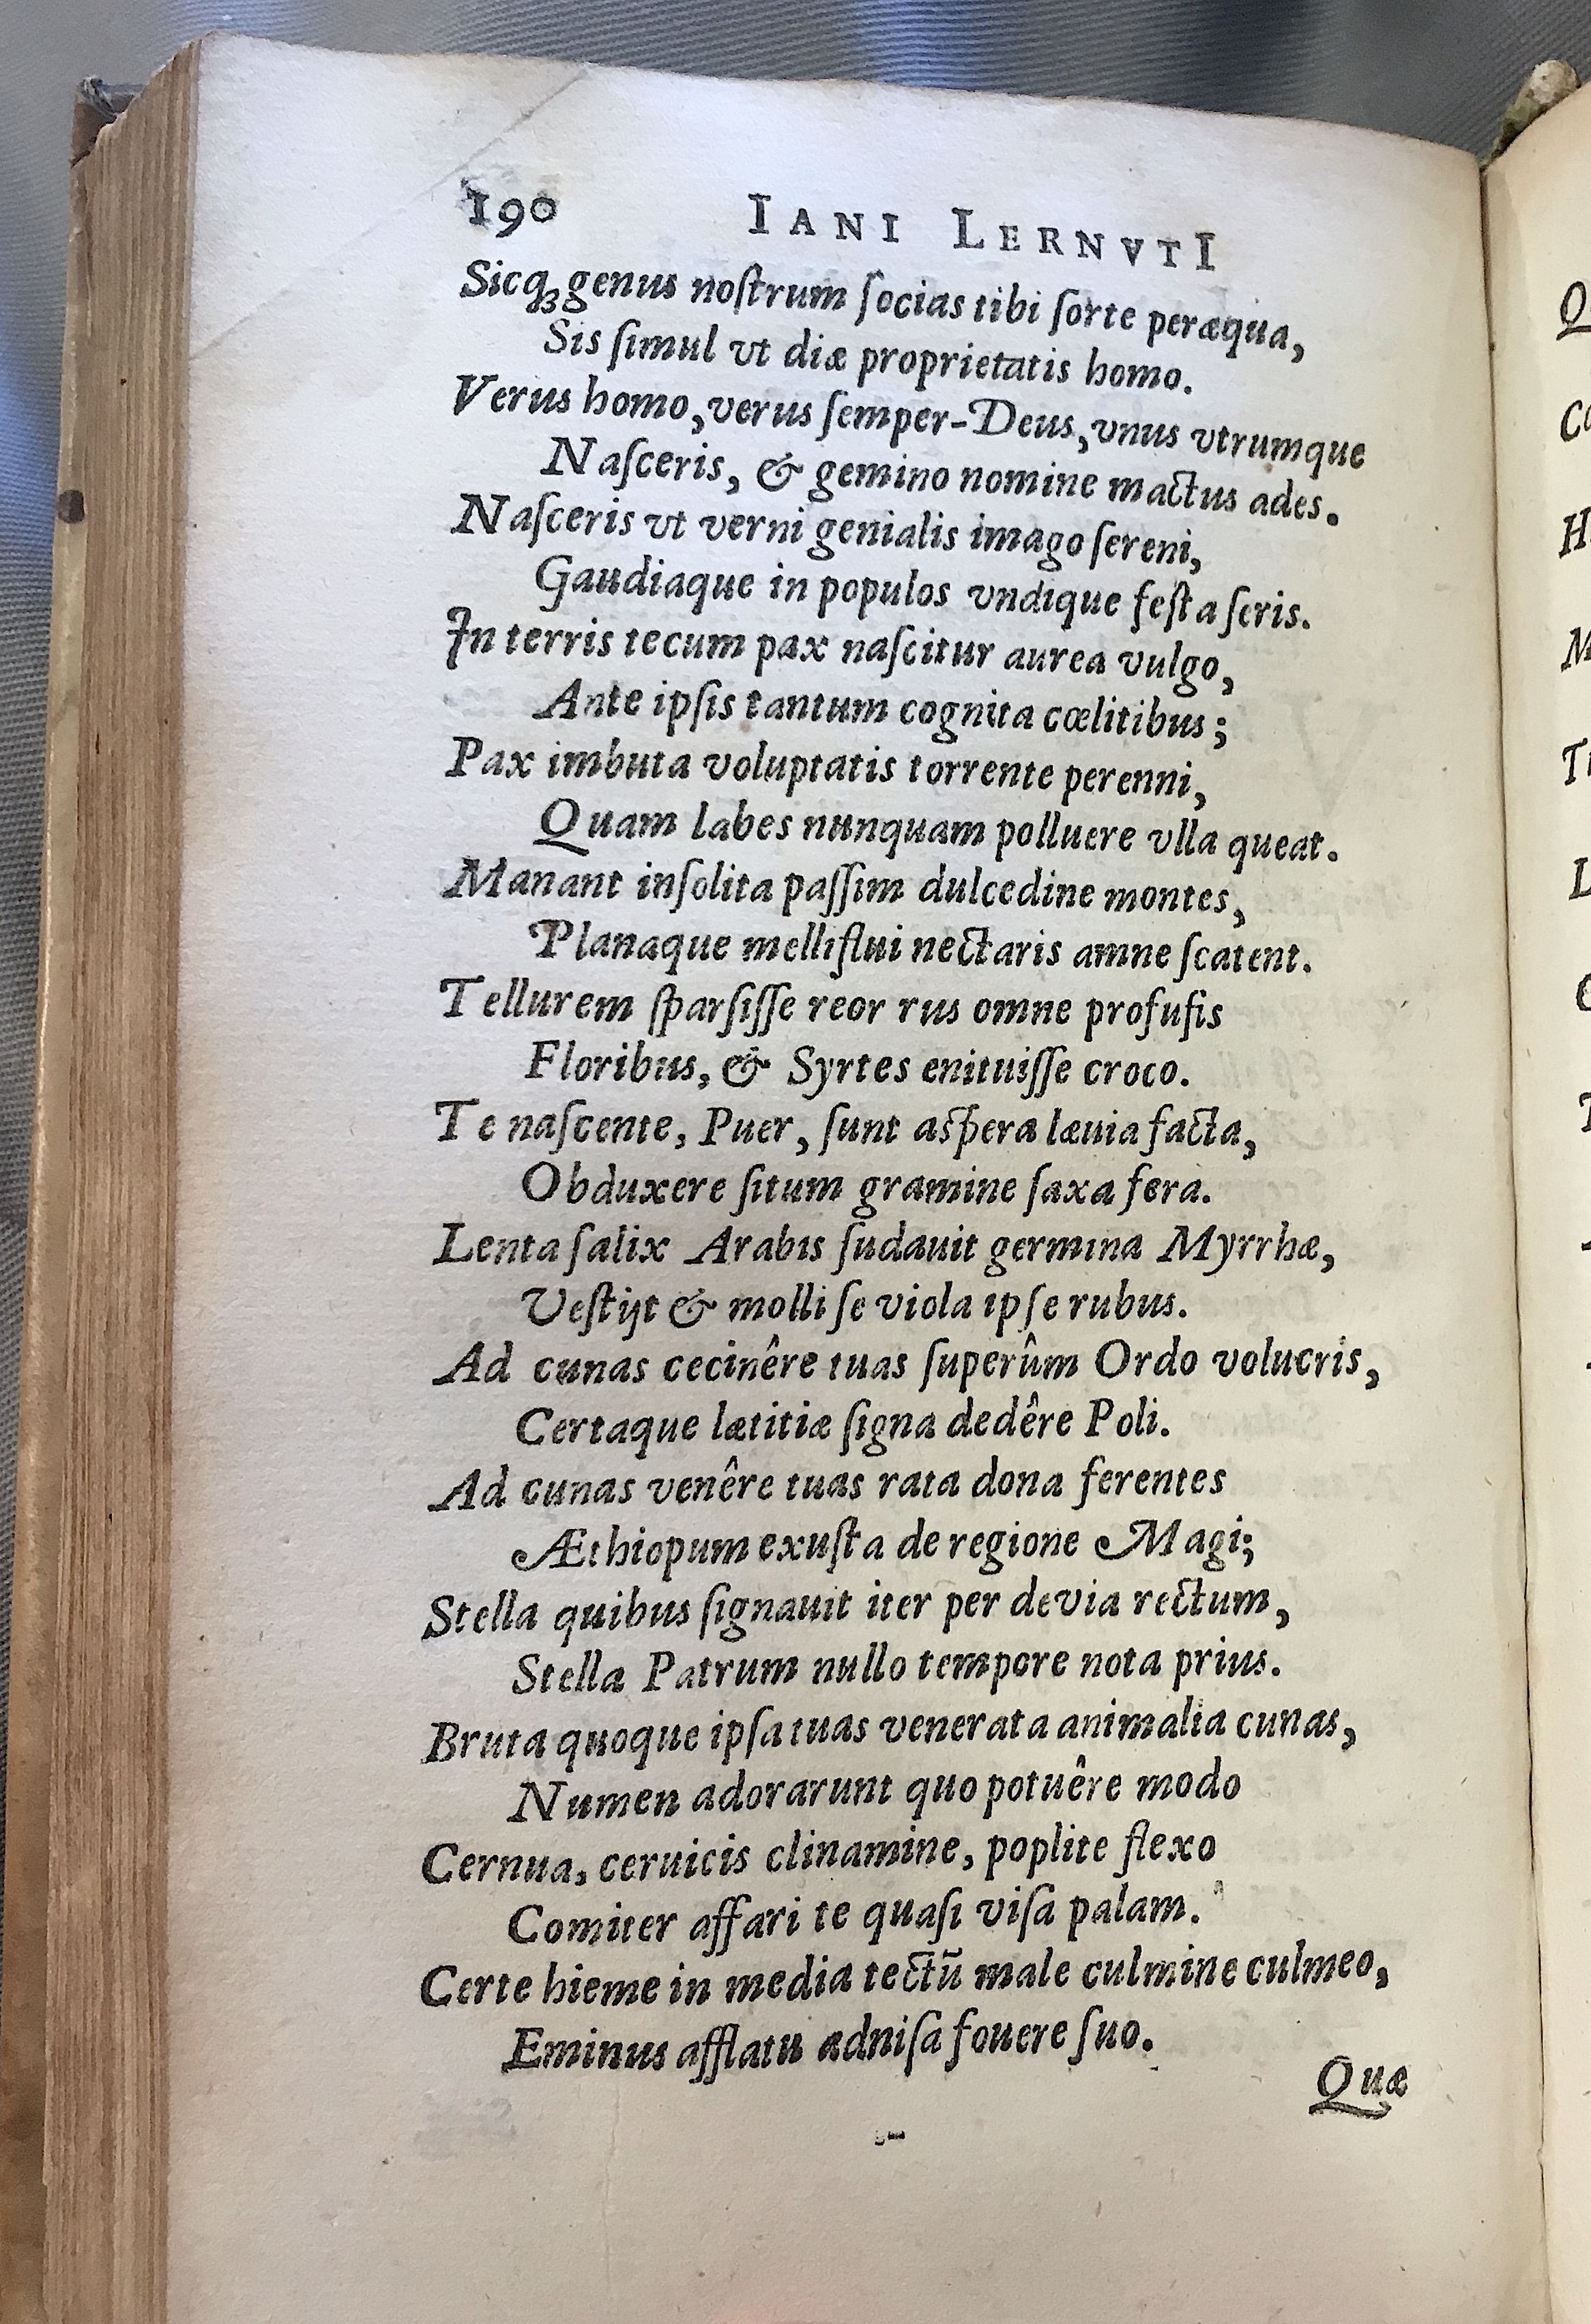 190 IANI LERNVTI
Sicq́; genus noſtrum ſocias tibi ſorte peræqua,
Sis ſimul vt diæ proprietatis homo.
Verus homo, verus ſemper-Deus, vnus vtrumque
Naſceris, & gemino nomine mactus ades.
Naſceris vt verni genialis imago ſereni,
Gaudiaque in populos vndique feſta ſeris.
In terris tecum pax naſcitur aurea vulgo,
Ante ipſis tantum cognita cœlitibus;
Pax imbuta voluptatis torrente perenni,
Quam labes nunquam polluere vlla queat.
Manant inſolita paſſim dulcedine montes,
Planaque melliflui nectaris amne ſcatent.
Tellurem ſparſiſſe reor rus omne profuſis
Floribus, & Syrtes enituiſſe croco.
Te naſcente, Puer, ſunt aſpera læuia facta,
Obduxere ſitum gramine ſaxa fera.
Lenta ſalix Arabis ſudauit germina Myrrhæ,
Veſtijt & molli ſe viola ipſe rubus.
Ad cunas cecinêre tuas ſuperûm Ordo volucris,
Certaque lætitiæ ſigna dedêre Poli.
Ad cunas venêre tuas rata dona ferentes
Æthiopum exuſta de regione Magi;
Stella quibus ſignauit iter per devia rectum,
Stella Patrum nullo tempore nota prius.
Bruta quoque ipſa tuas venerata animalia cunas,
Numen adorarunt quo potuêre modo
Cernua, ceruicis clinamine, poplite flexo
Comiter affari te quaſi viſa palam.
Certe hieme in media tectū male culmine culmeo,
Eminus afflatu adniſa fouere ſuo.
Quæ